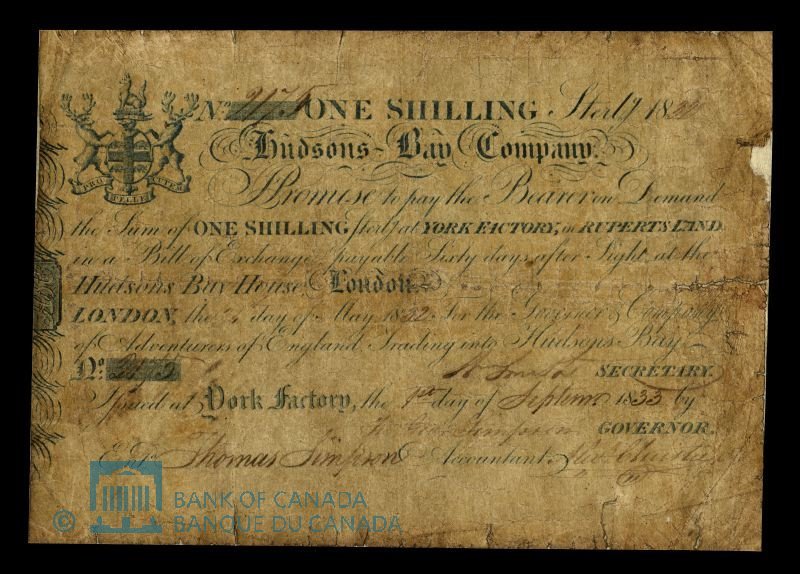 PRO PELLE CUTEM
No. ONE SHILLING Sterlg 1832
Hudsons Bay Company.
I Promise to pay the Bearer on Demand
the Sum of ONE SHILLING sterlg at YORK FACTORY, in RUPERTS LAND
in a Bill of Exchange payable Sixty days after Sight at the
Hudsons Bay House London.
LONDON, the day of May 1832 For the Governor & Company
of Adventurers of England Trading into Hudsons Bay
No. SECRETARY.
Issued at York Factory, the 1st day of Septemr 1833 by
Simpson GOVERNOR.
Entd Thomas Simpson Accountant
© BANK OF CANADA
BANQUE DU CANADA